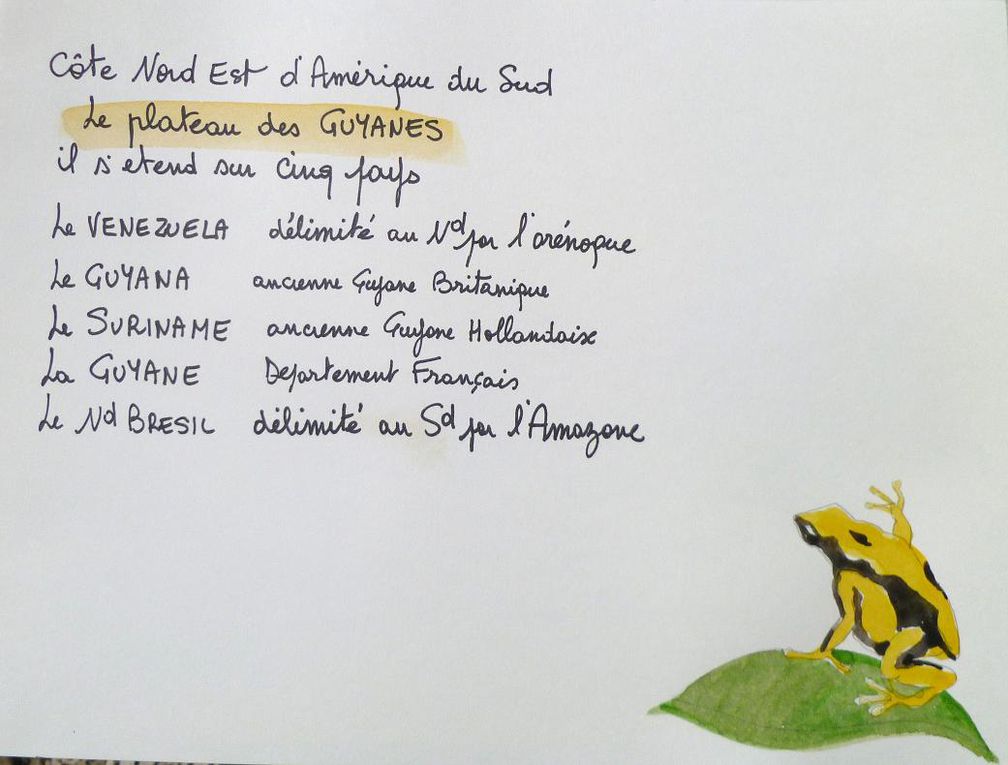 Côte Nord Est d'Amérique du Sud
Le plateau des GUYANES
il s'etend sur cinq pays
Le VENEZUELA délimité au Nd par l'orénoque
Le GUYANA ancienne Guyane Britanique
Le SURINAME ancienne Guyane Hollandaise
La GUYANE Departement Français
Le Nd BRESIL délimité au Sd par l'Amazone